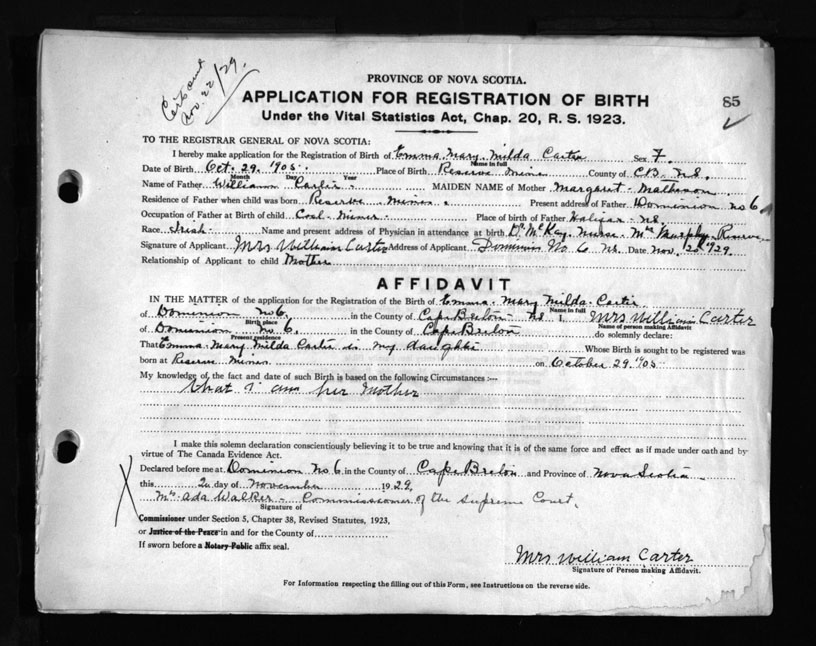 Cert sent
Nov. 22/29.
PROVINCE OF NOVA SCOTIA.
APPLICATION FOR REGISTRATION OF BIRTH
85
Under the Vital Statistics Act, Chap. 20, R. S. 1923.
TO THE REGISTRAR GENERAL OF NOVA SCOTIA:
I hereby make application for the Registration of Birth of Emma Mary Milda Carter Sex F.
Name in full
Date of Birth Oct. 29. 1905. Place of Birth Reserve Mines County of C.B. N.S.
Month Day Year
Name of Father William Carter. MAIDEN NAME of Mother Margaret Matheson
Residence of Father when child was born Reserve Mines. Present address of Father Dominion No 6
Occupation of Father at Birth of child Coal-Miner. Place of birth of Father Halifax N.S.
Race Irish Name and present address of Physician in attendance at birth Dr McKay. Nurse Mrs Murphy Reserve
Signature of Applicant Mrs William Carter Address of Applicant Dominion No. 6 N.S. Date Nov. 20 1929.
Relationship of Applicant to child Mother
AFFIDAVIT
IN THE MATTER of the application for the Registration of the Birth of Emma Mary Milda Carter
Name in full
of Dominion No 6. in the County of Cape Breton N.S I, Mrs William Carter
Birth place Name of person making Affidavit
of Dominion No 6. in the County of Cape Breton do solemnly declare:
Present residence
That Emma Mary Milda Carter is my daughter Whose Birth is sought to be registered was
born at Reserve Mines on October 29. 1905.
My knowledge of the fact and date of such Birth is based on the following Circumstances :—
that I am her Mother
I make this solemn declaration conscientiously believing it to be true and knowing that it is of the same force and effect as if made under oath and by
virtue of The Canada Evidence Act.
Declared before me at Dominion No. 6. in the County of Cape Breton and Province of Nova Scotia
this 20 day of November 1929.
Mrs Ada Walker - Commissioner of the Supreme Court.
Signature of
Commissioner under Section 5, Chapter 38, Revised Statutes, 1923,
or Justice of the Peace in and for the County of
If sworn before a Notary Public affix seal.
Mrs William Carter
Signature of Person making Affidavit.
For Information respecting the filling out of this Form, see Instructions on the reverse side.